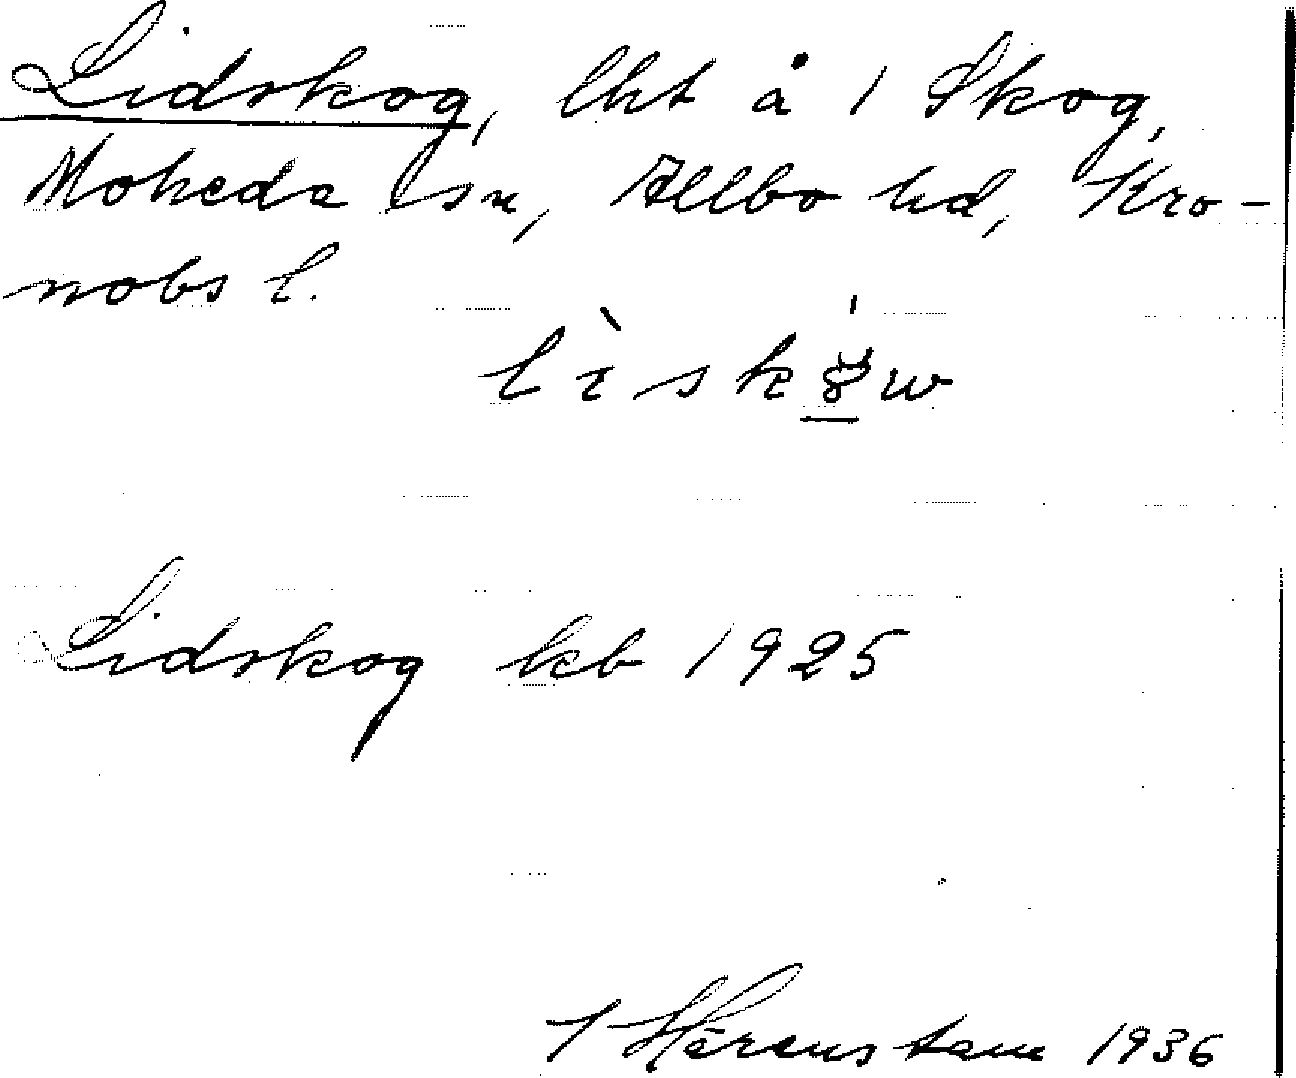 Lidskog, lht å 1 Skog,
Moheda sn, Allbo hd, Kro-
nobs l.
Lidskog kb 1925
Härenstam 1936